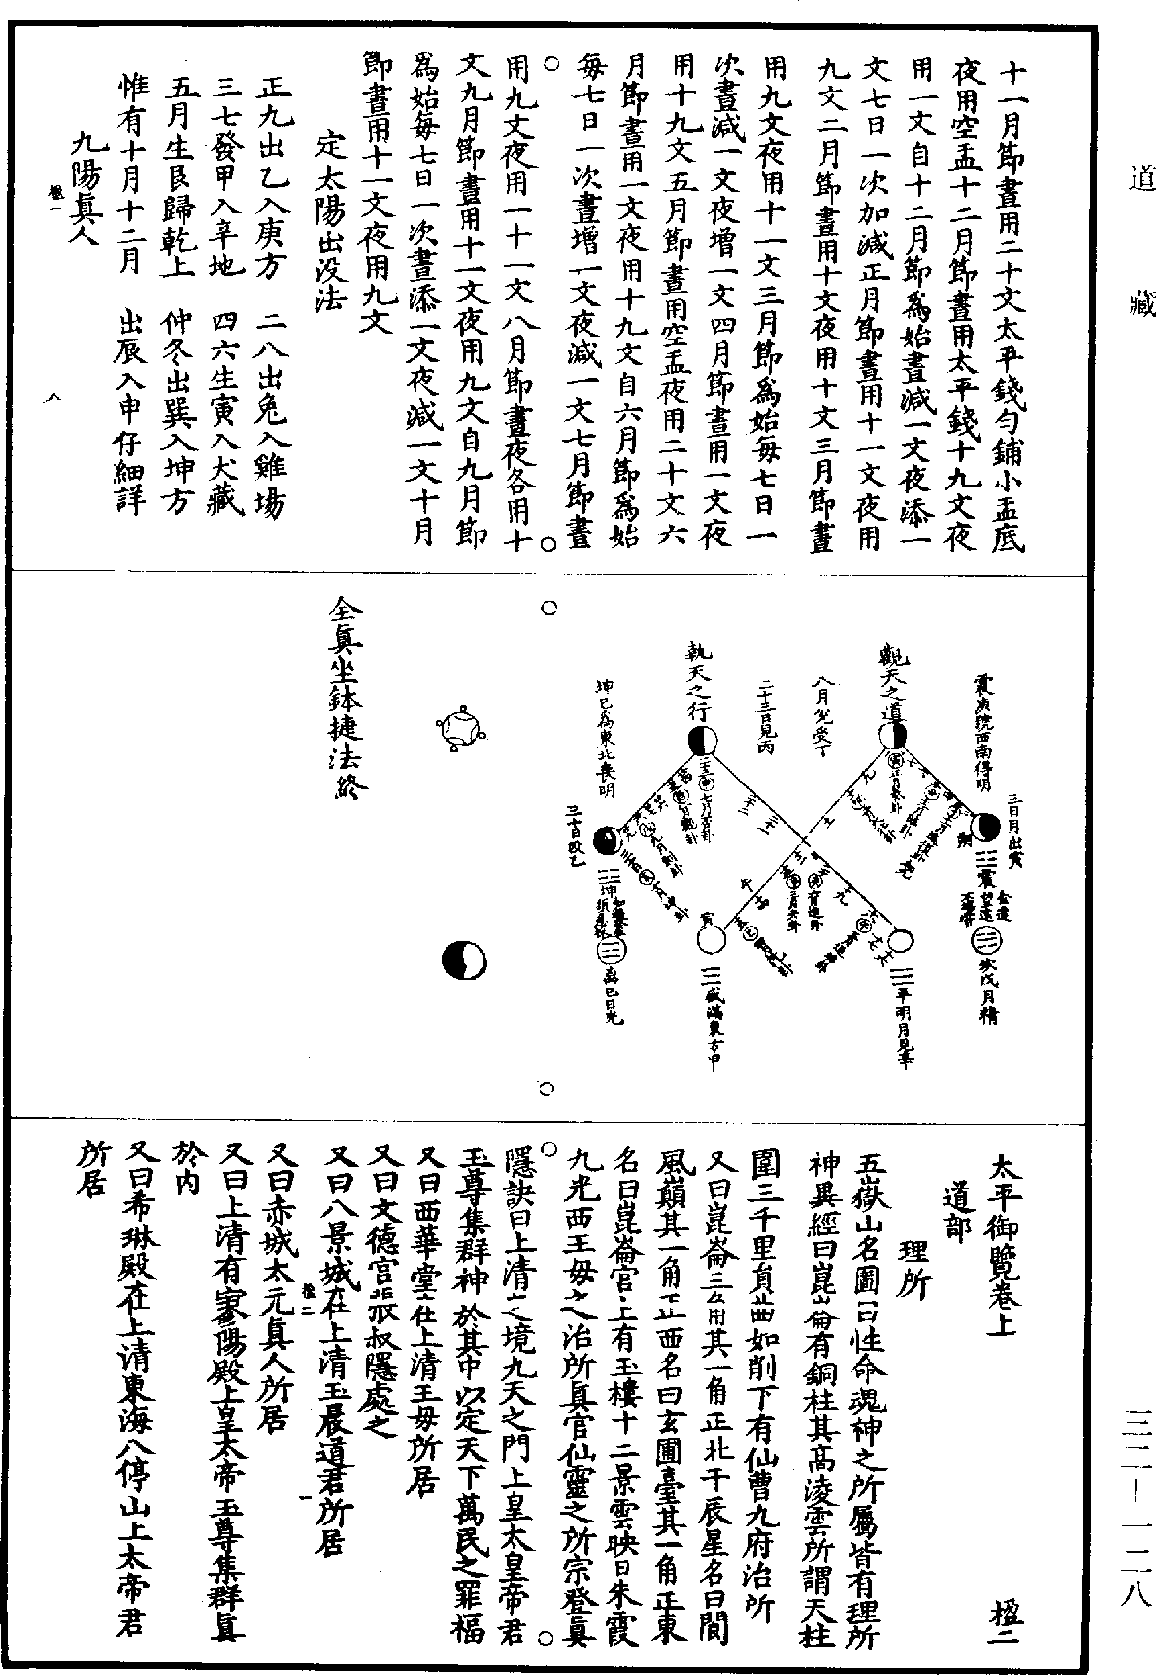 道藏
十一月節晝用二十文太平錢勻鋪小盂底
夜用空盂十二月節晝用太平錢十九文夜
用一文自十二月節爲始晝減一文夜添一
文七日一次加減正月節晝用十一文夜用
九文二月節晝用十文夜用十文三月節晝
用九文夜用十一文三月節爲始每七日一
次晝減一文夜增一文四月節晝用一文夜
用十九文五月節晝用空盂夜用二十文六
月節晝用一文夜用十九文自六月節爲始
每七日一次晝增一文夜減一文七月節晝
用九文夜用一十一文八月節晝夜各用十
文九月節晝用十一文夜用九文自九月節
爲始每七日一次晝添一文夜減一文十月
節晝用十一文夜用九文
定太陽出没法
正九出乙入庚方 二八出兔入雞場
三七發甲入辛地 四六生寅入犬藏
五月生艮歸乾上 仲冬出巽入坤方
惟有十月十二月 出辰入申仔細詳
九陽眞人
楹一 八
震庚號西南得明
三日月出庚
觀天之道
八月兌受丁
二十三日見丙
執天之行
坤已爲東北喪明
震
坎戊月精
平明月見辛
盛滿東方甲
坤
離已日光
全眞坐鉢捷法終
太平御覽卷上 楹二
道部
理所
五嶽山名圖曰性命魂神之所屬皆有理所
神異經曰崑崙有銅柱其高淩雲所謂天柱
圍三千里員曲如削下有仙曹九府治所
又曰崑崙三角其一角正北干辰星名曰閬
風巔其一角正西名曰玄圃臺其一角正東
名曰崑崙宫上有玉樓十二景雲映日朱霞
九光西王母之治所眞官仙靈之所宗登眞
隱訣曰上清之境九天之門上皇太皇帝君
玉尊集群神於其中以定天下萬民之罪福
又曰西華堂在上清王母所居
又曰文德宫張叔隱處之
又曰八景城在上清玉晨道君所居
楹二 一
又曰赤城太元眞人所居
又曰上清有寥陽殿上皇太帝玉尊集群眞
於内
又曰希琳殿在上清東海八停山上太帝君
所居
三二—一二八